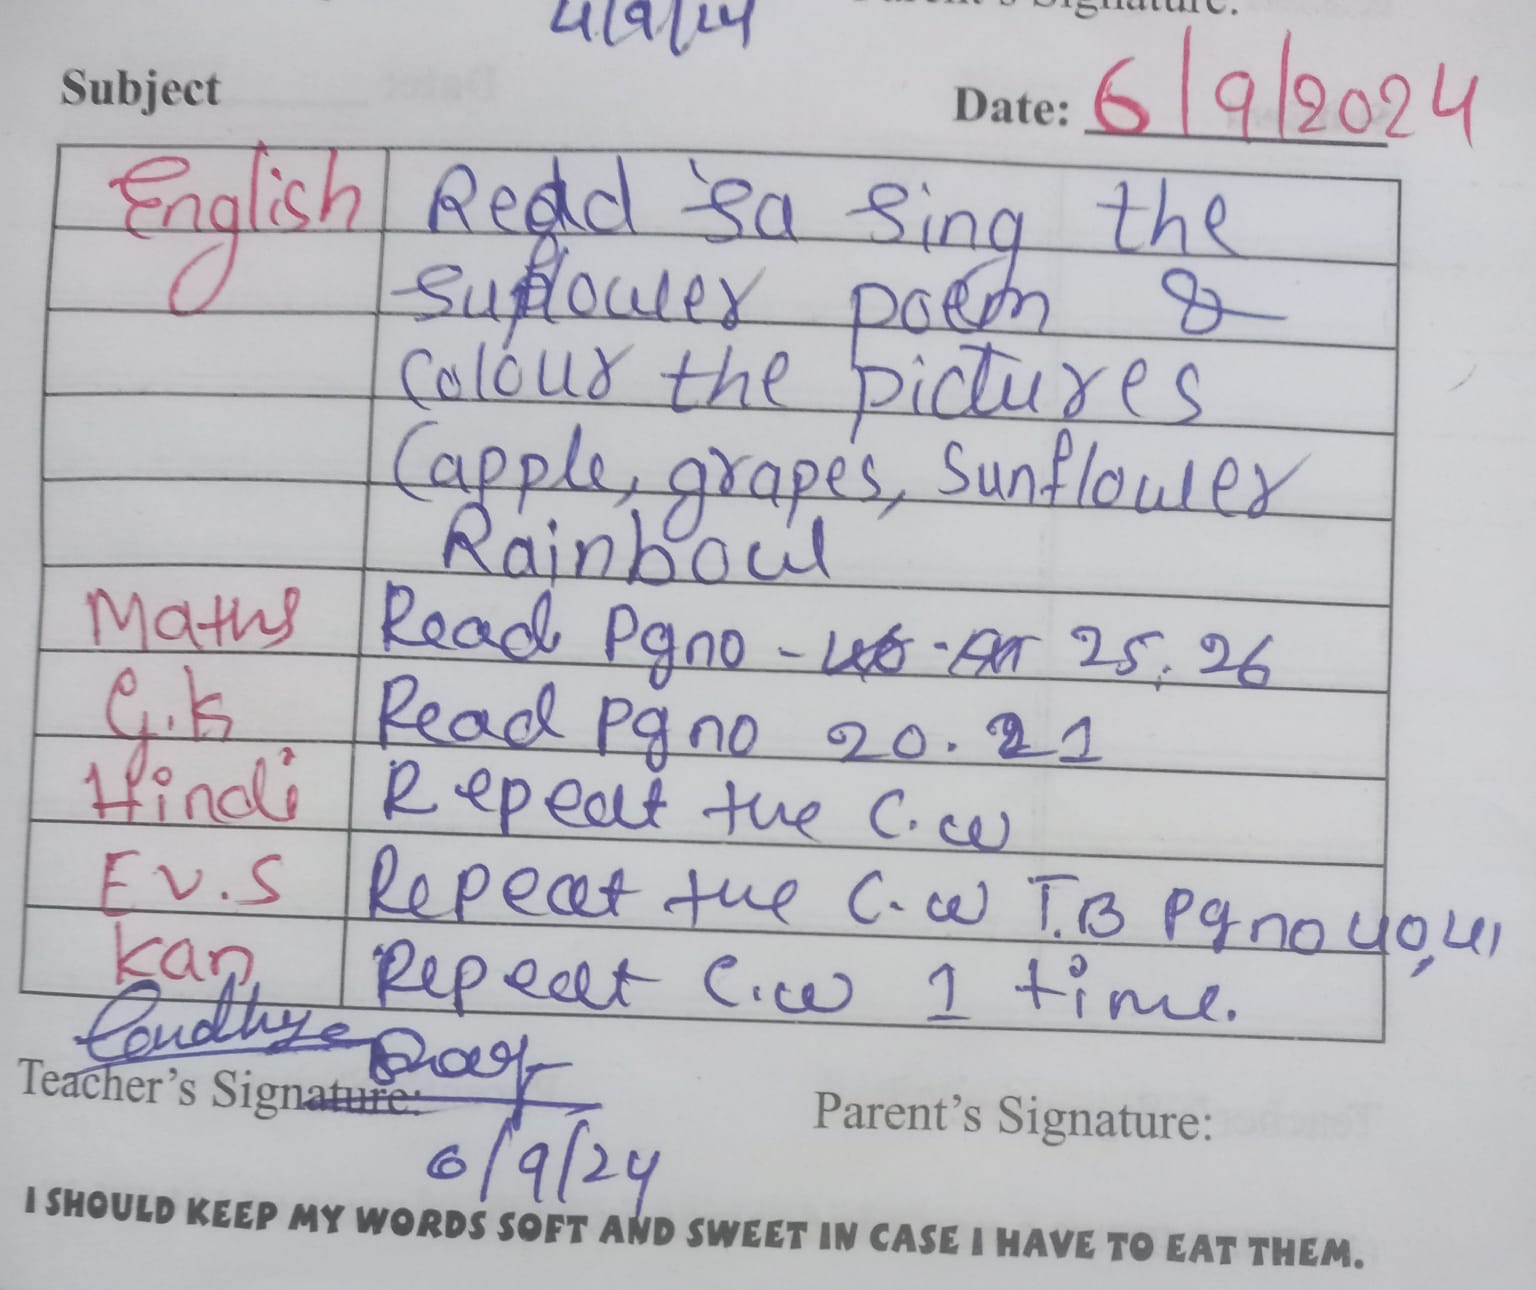 4/9/24
Parent's Signature:
Subject
Date: 6/9/2024
English Read & Sing the
Suflower poem &
Colour the pictures
(apple, grapes, Sunflower
Rainbow
Maths Read Pg no - 25, 26
G.K Read Pg no 20. 21
Hindi Repeat the C.w
Ev.S Repeat the C.w T.B Pg no 40,41
Kan Repeat C.w 1 time.
Teacher's Signature:
Parent's Signature:
6/9/24
I SHOULD KEEP MY WORDS SOFT AND SWEET IN CASE I HAVE TO EAT THEM.